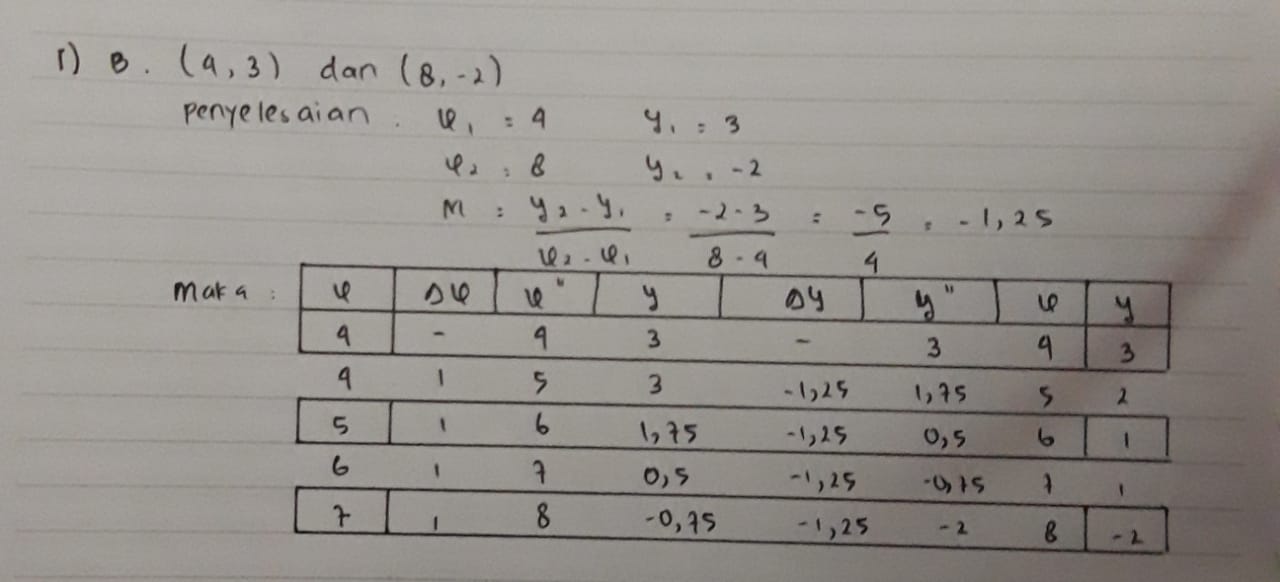 1) B. (4,3) dan (8,-2)
penyelesaian. x₁ = 4 y₁ = 3
x₂ = 8 y₂ = -2
M = y₂-y₁ / x₂-x₁ = -2-3 / 8-4 = -5 / 4 = -1,25
maka :
x Δx x" y Δy y" x y
4 - 4 3 - 3 4 3
4 1 5 3 -1,25 1,75 5 2
5 1 6 1,75 -1,25 0,5 6 1
6 1 7 0,5 -1,25 -0,75 7 1
7 1 8 -0,75 -1,25 -2 8 -2